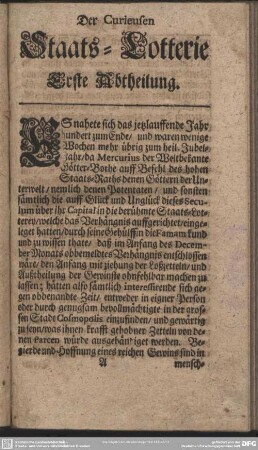 Der Curieusen
Staats-Lotterie
Erste Abtheilung.
ES nahete sich das jetzlauffende Jahr
hundert zum Ende/ und waren wenige
Wochen mehr übrig zum heil. Jubel-
jahr/da Mercurius der Weltbekante
Götter-Bothe auff Befehl des hohen
Staats-Raths denen Göttern der Un-
terwelt/ nemlich denen Potentaten/ und sonsten
sämtlich die auff Glück und Unglück dieses Secu-
lum über ihr Capital in die berühmte Staats-Lot-
terey/welche das Verhängnis auffgerichtet/einge-
leget hatten/durch seine Gehülffin die Famam kund
und zu wissen thate/ daß im Anfang des Decem-
ber Monats obbemeldtes Verhängnis entschlossen
wäre/ den Anfang mit ziehung der Loßzetteln/und
Außtheilung der Gewinste ohnfehlbar machen zu
lassen; hätten also sämtlich interessirende sich ge-
gen obbenandte Zeit/ entweder in eigner Person
oder durch genugsam bevollmächtigte in der gros-
sen Stadt Cosmopolis einzufinden/ und gewärtig
zu seyn/was ihnen krafft gehobner Zetteln von de-
nen Parcen würde ausgehändiget werden. Be-
gierde und Hoffnung eines reichen Gewins sind in
A mensch-